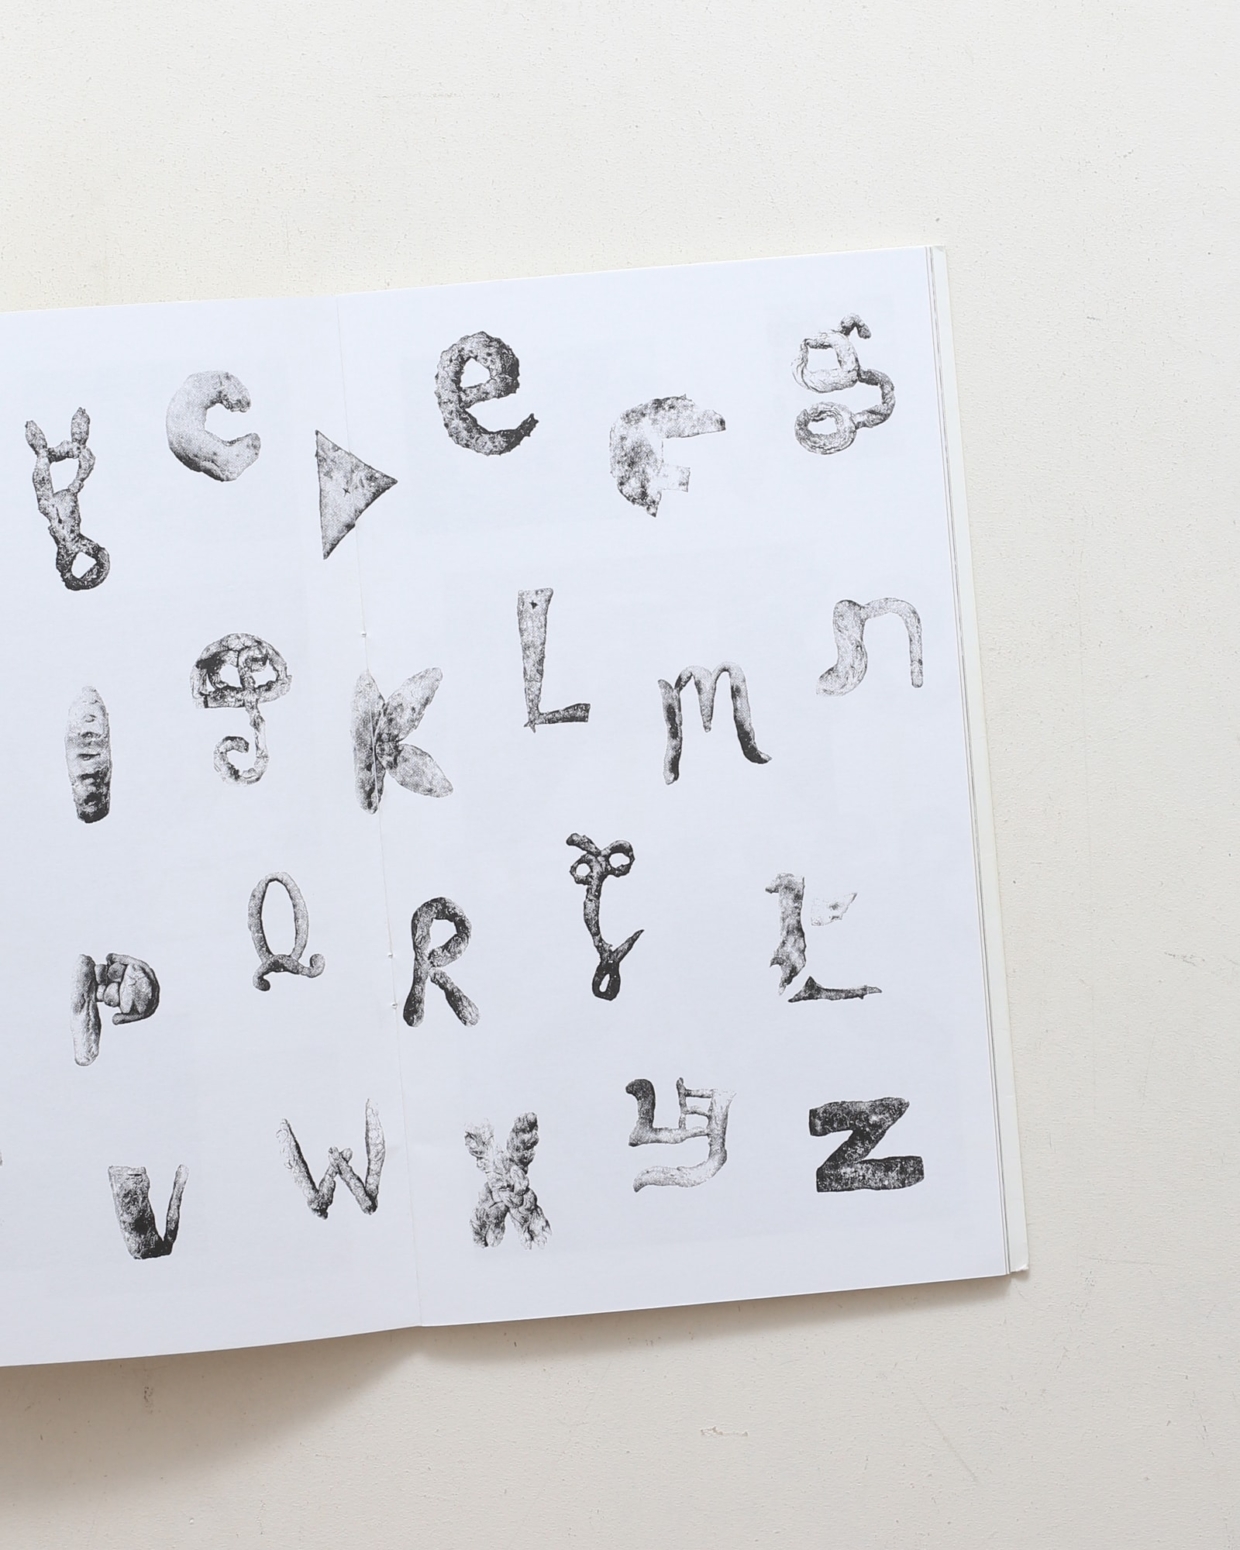 c D e F g
I J K L m n
P Q R S t
V W X y Z